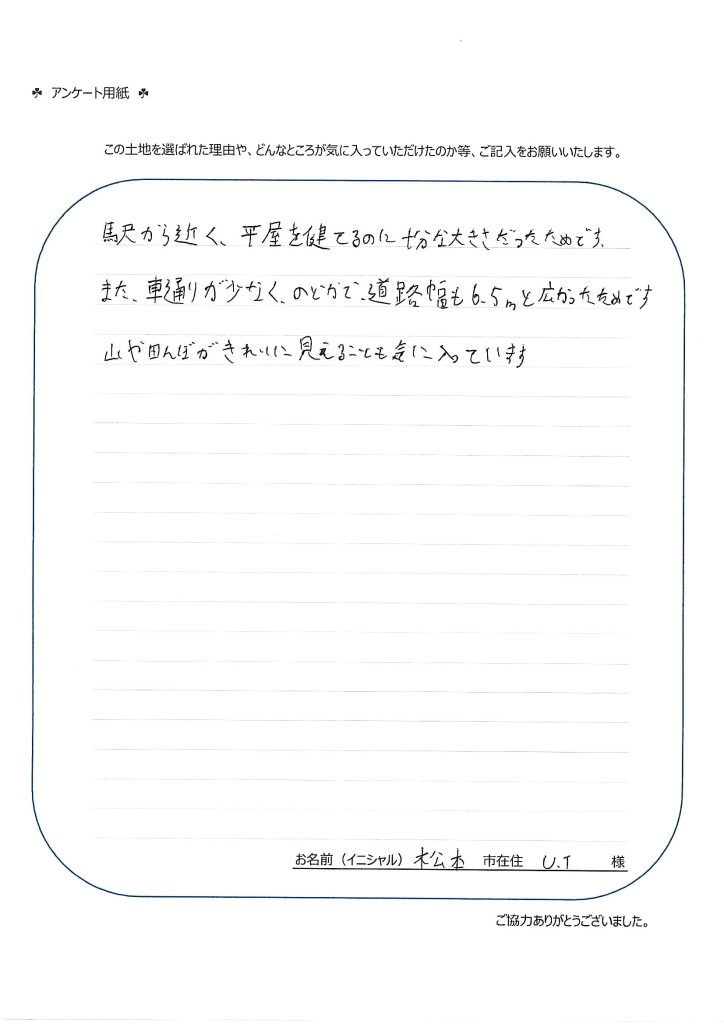 ☘ アンケート用紙 ☘
この土地を選ばれた理由や、どんなところが気に入っていただけたのか等、ご記入をお願いいたします。
駅から近く、平屋を健てるのに十分な大きさだったためです。
また、車通りが少なく、のどかで、道路幅も6.5mと広かったためです
山や田んぼがきれいに見えることも気に入っています
お名前（イニシャル） 松本 市在住 U.T 様
ご協力ありがとうございました。